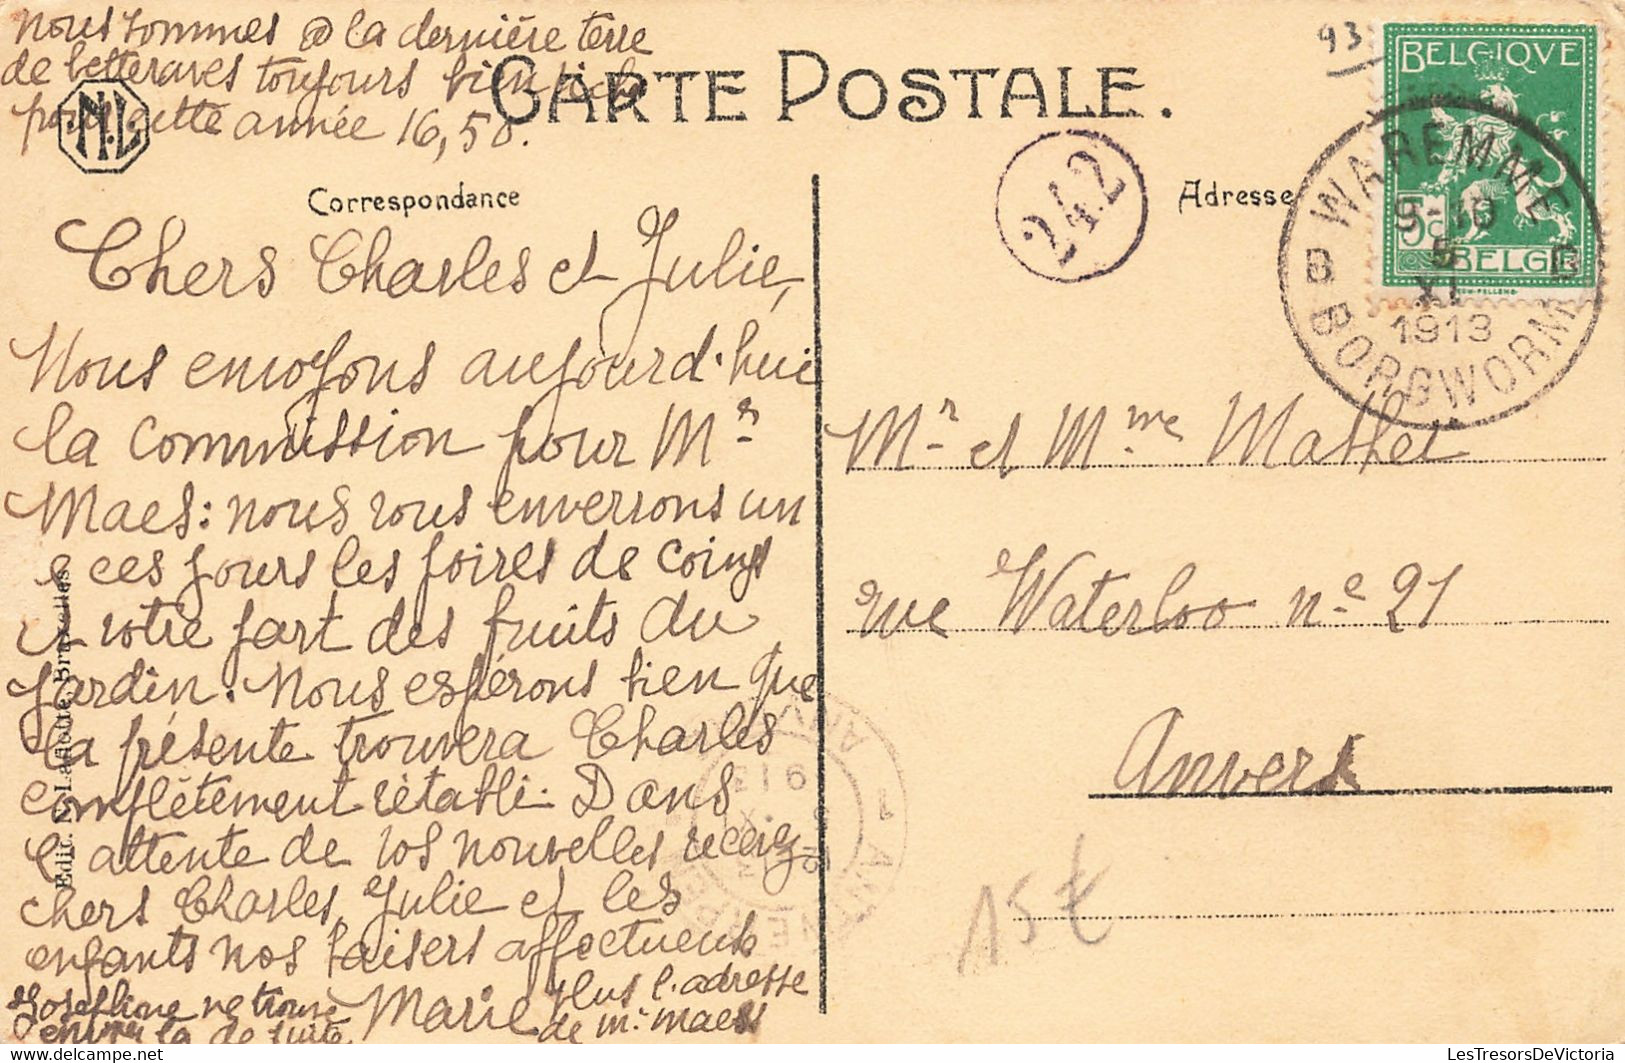 nous sommes @ la dernière terre
de betteraves toujours bien riche
pour cette année 16,50.
CARTE POSTALE.
N.L
93
BELGIQUE
5c
BELGIË
WAREMME
9-10
5
XI
1913
B B
BORGWORM
242
Correspondance
Adresse
Chers Charles et Julie,
Nous envoyons aujourd'hui
la commission pour Mr
Maes: nous vous enverrons un
@ ces jours les poires de coings
et votre part des fruits du
jardin. Nous espérons bien que
la présente trouvera Charles
complètement rétabli. Dans
l'attente de vos nouvelles recevez
chers Charles, Julie et les
enfants nos baisers affectueux
Marie
Josephine ne trouve plus l'adresse
de Mr Maes
envoyer la de suite
Mr et Mme Mathei
rue Waterloo no 21
Anvers
15€
Edit. N. Laflotte, Bruxelles
delcampe.net
LesTresorsDeVictoria